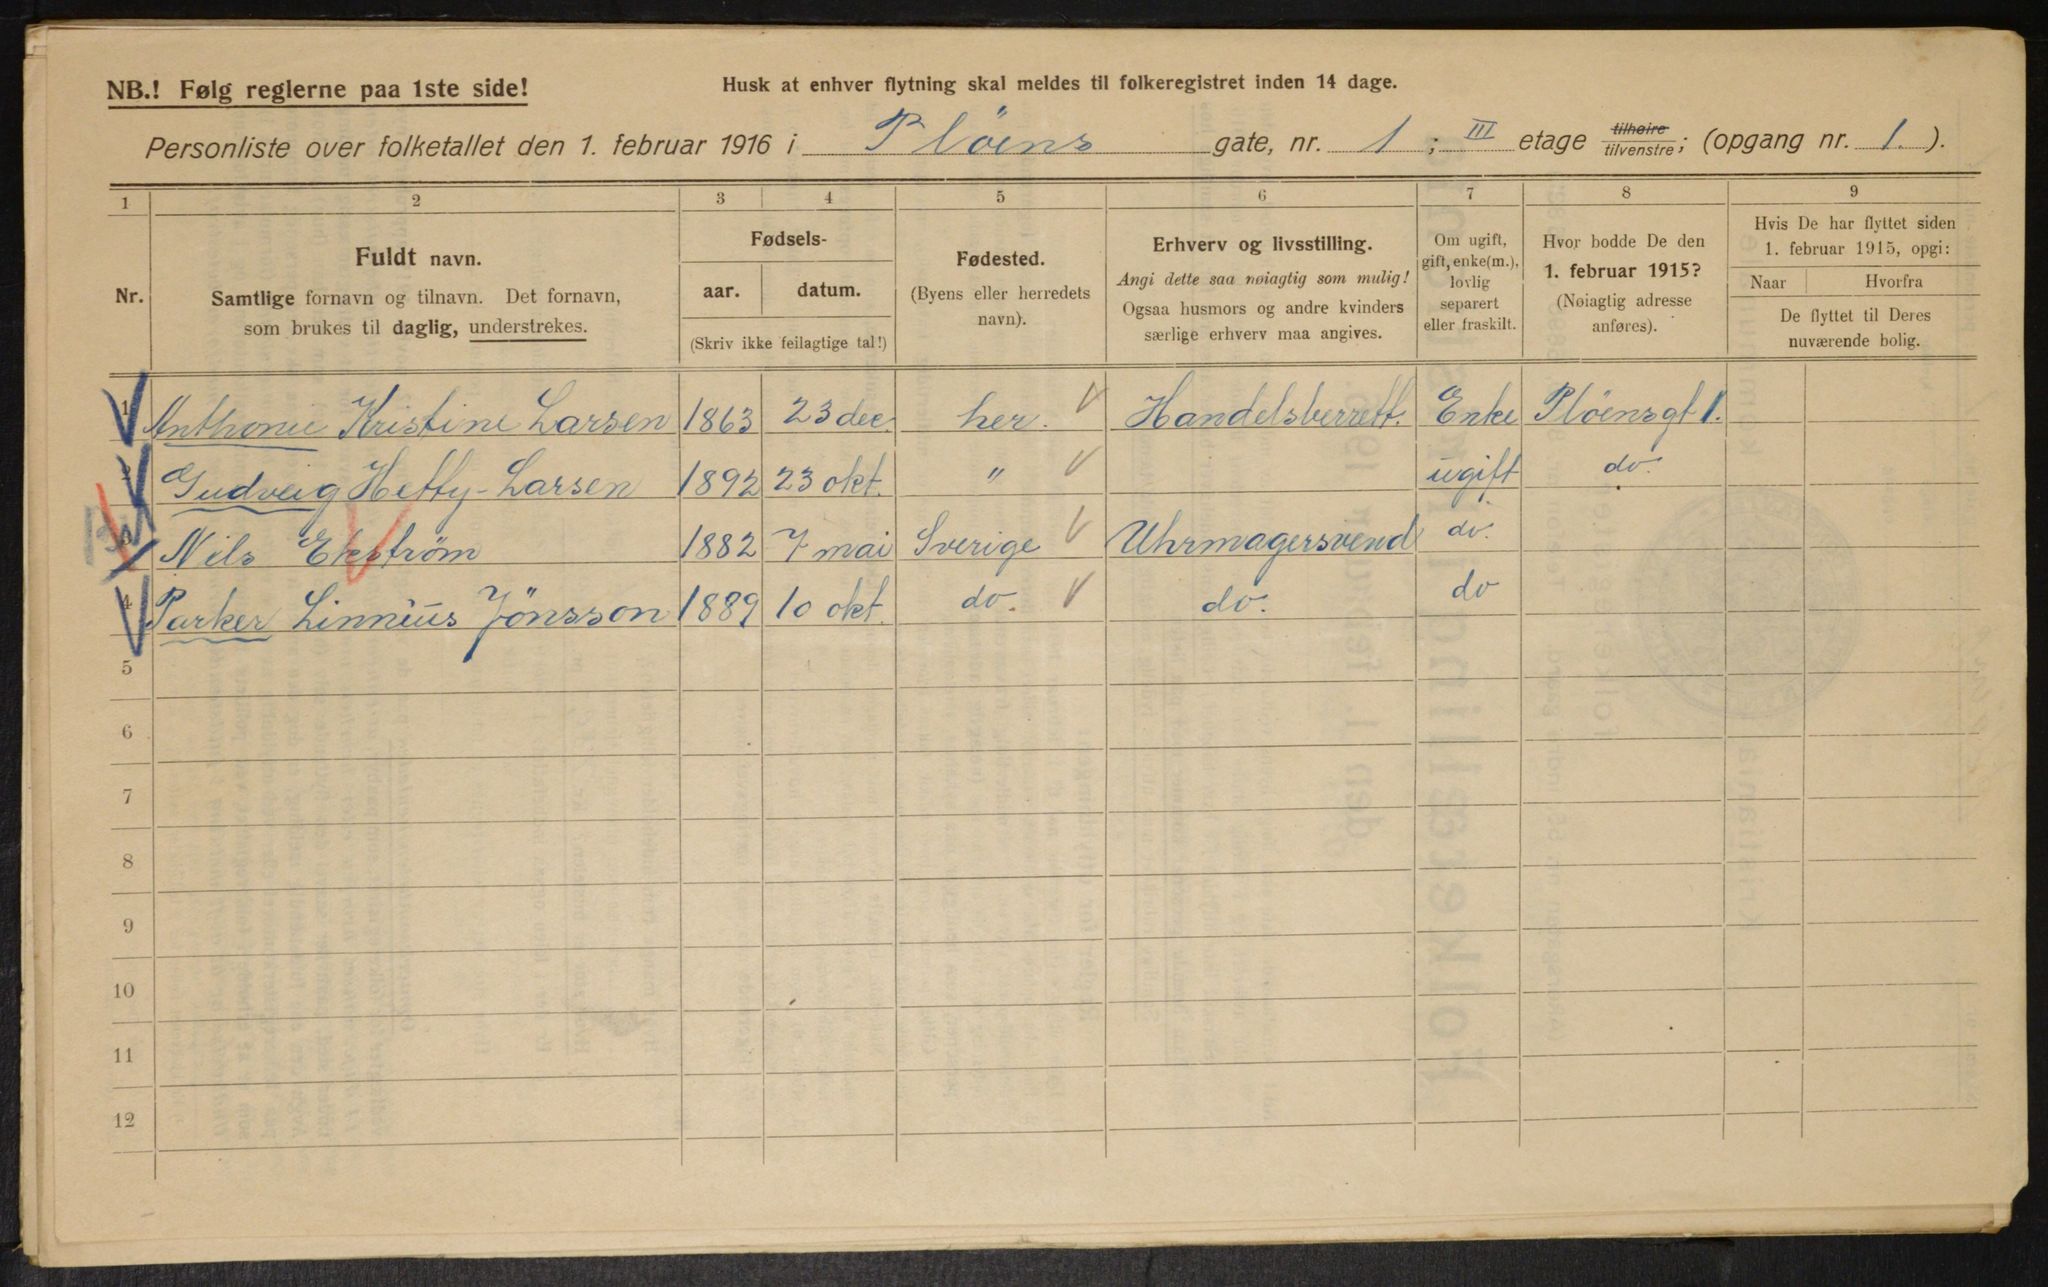 NB.! Følg reglerne paa 1ste side!
Husk at enhver flytning skal meldes til folkeregistret inden 14 dage.
Personliste over folketallet den 1. februar 1916 i Pløens gate, nr. 1; III etage tilhøire tilvenstre; (opgang nr. 1.).
1 2 3 4 5 6 7 8 9
Nr.
Fuldt navn.
Samtlige fornavn og tilnavn. Det fornavn,
som brukes til daglig, understrekes.
Fødsels-
aar. datum.
(Skriv ikke feilagtige tal!)
Fødested.
(Byens eller herredets
navn).
Erhverv og livsstilling.
Angi dette saa nøiagtig som mulig!
Ogsaa husmors og andre kvinders
særlige erhverv maa angives.
Om ugift,
gift, enke(m.),
lovlig
separert
eller fraskilt.
Hvor bodde De den
1. februar 1915?
(Nøiagtig adresse
anføres).
Hvis De har flyttet siden
1. februar 1915, opgi:
Naar Hvorfra
De flyttet til Deres
nuværende bolig.
1 Anthonie Kristine Larsen 1863 23 dec. her. Handelsberrett. Enke Pløensgt 1.
2 Gudveig Hetty-Larsen 1892 23 okt. " ugift do.
3 Nils Ekstrøm 1882 7 mai Sverige Uhrmagersvend do.
4 Parker Linneus Jönsson 1889 10 okt. do. do. do
5
6
7
8
9
10
11
12